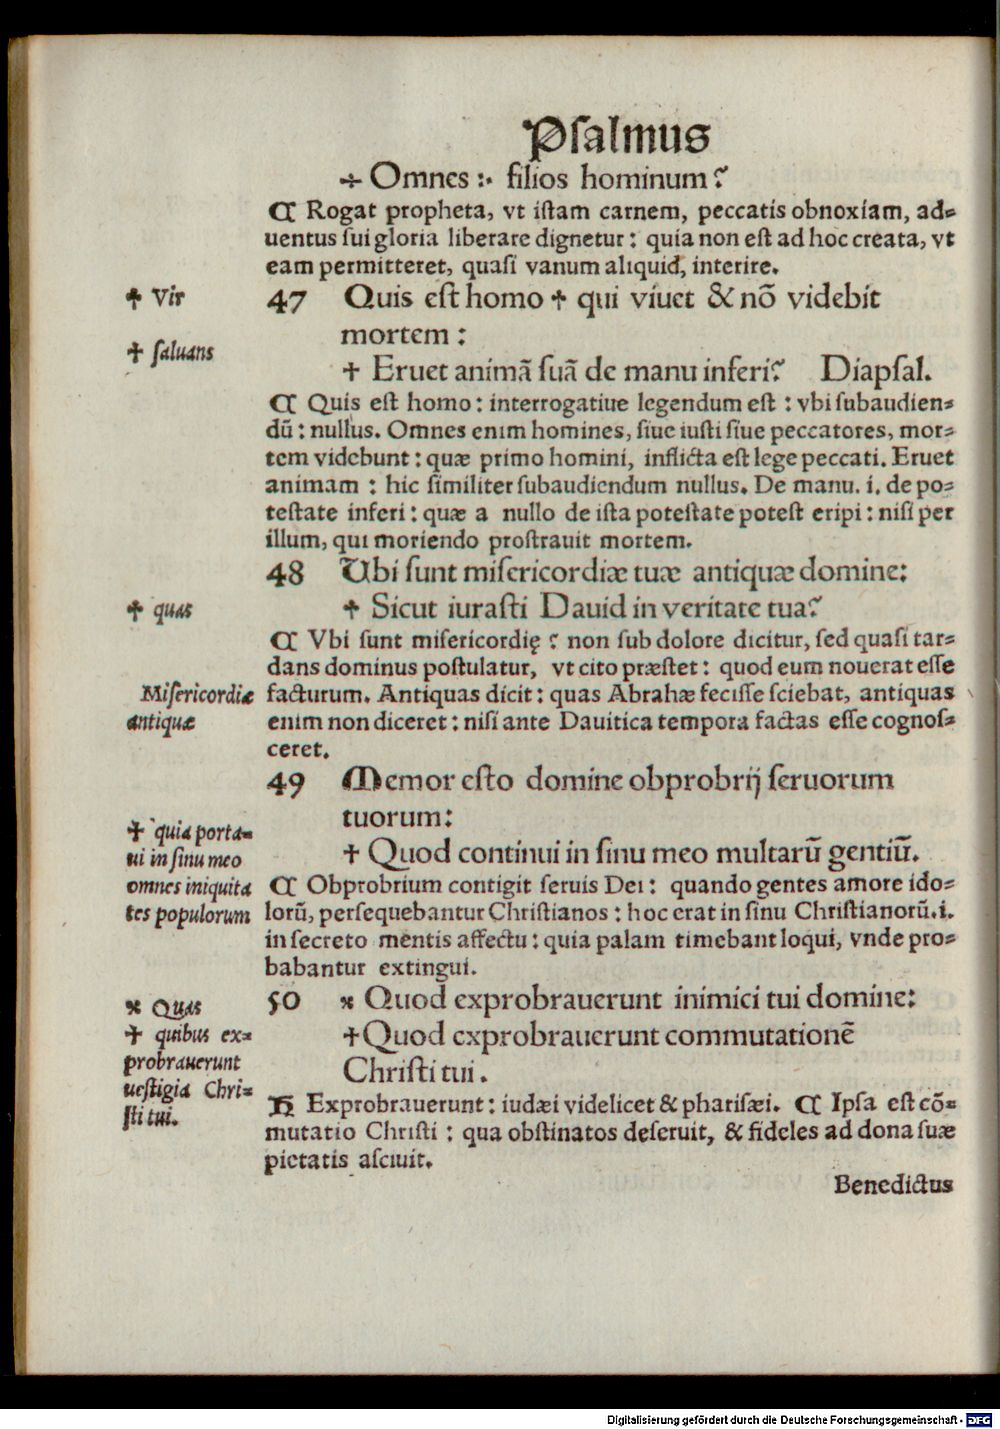 Psalmus
÷ Omnes :· filios hominum?
¶ Rogat propheta, vt istam carnem, peccatis obnoxiam, ad⸗
uentus sui gloria liberare dignetur: quia non est ad hoc creata, vt
eam permitteret, quasi vanum aliquid, interire.
✝ Vir
47 Quis est homo ✝ qui viuet & nō videbit
mortem:
✝ saluans
✝ Eruet animā suā de manu inferi? Diapsal.
¶ Quis est homo: interrogatiue legendum est: vbi subaudien⸗
dū: nullus. Omnes enim homines, siue iusti siue peccatores, mor⸗
tem videbunt: quæ primo homini, inflicta est lege peccati. Eruet
animam: hic similiter subaudiendum nullus. De manu. i. de po⸗
testate inferi: quæ a nullo de ista potestate potest eripi: nisi per
illum, qui moriendo prostrauit mortem.
48 Vbi sunt misericordiæ tuæ antiquæ domine:
✝ quas
✝ Sicut iurasti Dauid in veritate tua?
¶ Vbi sunt misericordię? non sub dolore dicitur, sed quasi tar⸗
dans dominus postulatur, vt cito præstet: quod eum nouerat esse
Misericordiæ
antiquæ
facturum. Antiquas dicit: quas Abrahæ fecisse sciebat, antiquas
enim non diceret: nisi ante Dauitica tempora factas esse cognos⸗
ceret.
49 Memor esto domine obprobrij seruorum
tuorum:
✝ quia porta⸗
ui in sinu meo
omnes iniquita
tes populorum
✝ Quod continui in sinu meo multarū gentiū.
¶ Obprobrium contigit seruis Dei: quando gentes amore ido⸗
lorū, persequebantur Christianos: hoc erat in sinu Christianorū. i.
in secreto mentis affectu: quia palam timebant loqui, vnde pro⸗
babantur extingui.
※ Quas
✝ quibus ex⸗
probrauerunt
uestigia Chri⸗
sti tui.
50 ※ Quod exprobrauerunt inimici tui domine:
✝ Quod exprobrauerunt commutationē
Christi tui.
H Exprobrauerunt: iudæi videlicet & pharisæi. ¶ Ipsa est cō⸗
mutatio Christi: qua obstinatos deseruit, & fideles ad dona suæ
pietatis asciuit.
Benedictus
Digitalisierung gefördert durch die Deutsche Forschungsgemeinschaft - DFG